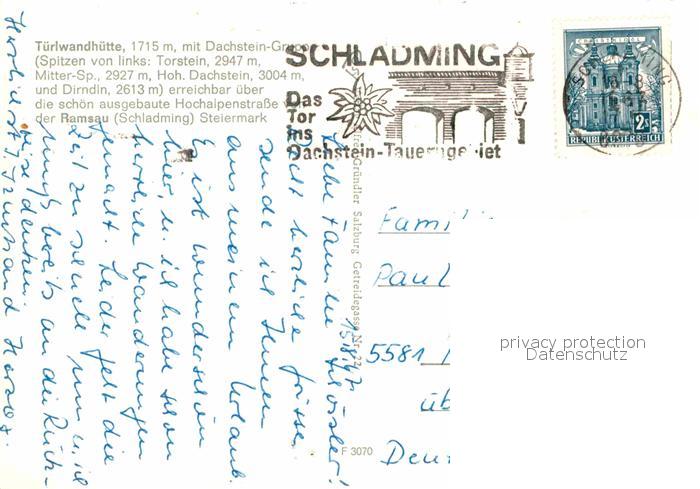 Türlwandhütte, 1715 m, mit Dachstein-Gruppe
(Spitzen von links: Torstein, 2947 m,
Mitter-Sp., 2927 m, Hoh. Dachstein, 3004 m,
und Dirndln, 2613 m) erreichbar über
die schön ausgebaute Hochalpenstraße
der Ramsau (Schladming) Steiermark
SCHLADMING
Das
Tor
ins
Dachstein-Tauerngebiet
CHRISTKINDL
2S
REPUBLIK ÖSTERREICH
Gründler Salzburg Getreidegasse Nr. 22
F 3070
Liebe Familie
Recht herzliche Grüsse
sende ich Ihnen
aus meinem Urlaub.
Es ist wunderschön
hier, u. ich habe schon
herrliche Wanderungen
gemacht. Leider geht die
Zeit zu schnell um u. ich
muß bereits an die Rück-
reise denken.
Herzlichst
Fami
Paul
5581
üb
Deu
privacy protection
Datenschutz